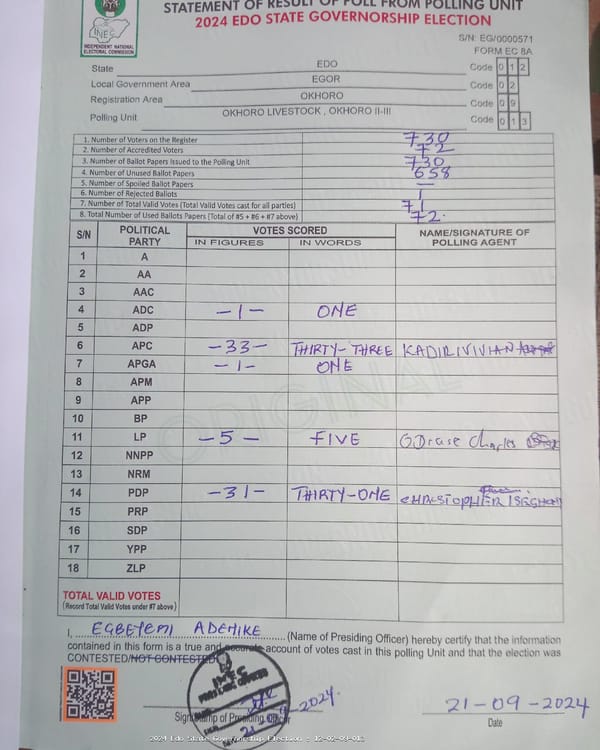 STATEMENT OF RESULT OF POLL FROM POLLING UNIT
2024 EDO STATE GOVERNORSHIP ELECTION
INEC
INDEPENDENT NATIONAL
ELECTORAL COMMISSION
S/N: EG/0000571
FORM EC 8A
State EDO Code 0 1 2
Local Government Area EGOR Code 0 2
Registration Area OKHORO Code 0 9
Polling Unit OKHORO LIVESTOCK , OKHORO II-III Code 0 1 3
1. Number of Voters on the Register 730
2. Number of Accredited Voters 72
3. Number of Ballot Papers Issued to the Polling Unit 730
4. Number of Unused Ballot Papers 658
5. Number of Spoiled Ballot Papers —
6. Number of Rejected Ballots 1
7. Number of Total Valid Votes (Total Valid Votes cast for all parties) 71
8. Total Number of Used Ballots Papers (Total of #5 + #6 + #7 above) 72.
S/N POLITICAL PARTY VOTES SCORED NAME/SIGNATURE OF POLLING AGENT
IN FIGURES IN WORDS
1 A
2 AA
3 AAC
4 ADC -1- ONE
5 ADP
6 APC -33- THIRTY-THREE KADIRI VIVIAN
7 APGA -1- ONE
8 APM
9 APP
10 BP
11 LP -5- FIVE Charles
12 NNPP
13 NRM
14 PDP -31- THIRTY-ONE CHRISTOPHER
15 PRP
16 SDP
17 YPP
18 ZLP
ORIGINAL
TOTAL VALID VOTES
(Record Total Valid Votes under #7 above)
I, EGBEYEMI ADENIKE (Name of Presiding Officer) hereby certify that the information
contained in this form is a true and accurate account of votes cast in this polling Unit and that the election was
CONTESTED/NOT CONTESTED
INEC
PRESIDING OFFICER
2024
21-09-2024
Signature of Presiding Officer
Date
2024 Edo State Governorship Election : 12-02-09-013